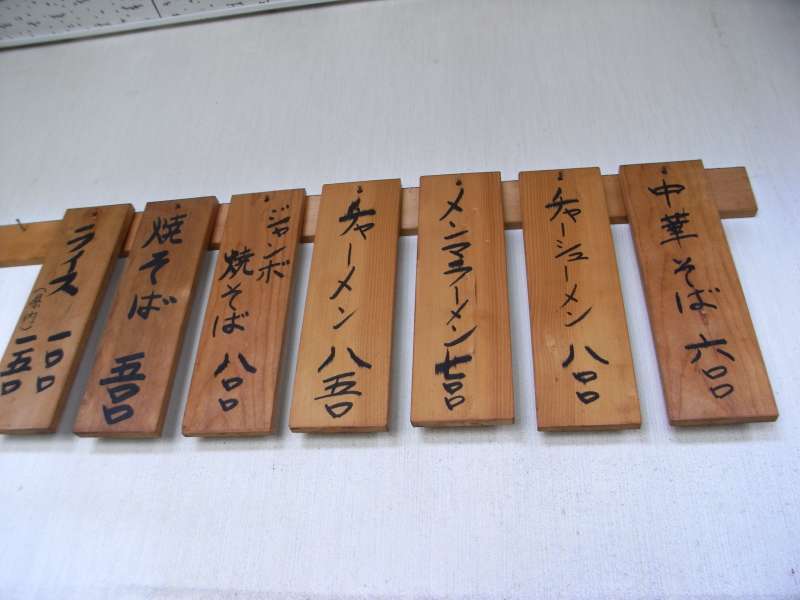 中華そば 六〇〇
チャーシューメン 八〇〇
メンマラーメン 七〇〇
チャーメン 八五〇
ジャンボ
焼そば 八〇〇
焼そば 五〇〇
ライス 一〇〇
一五〇